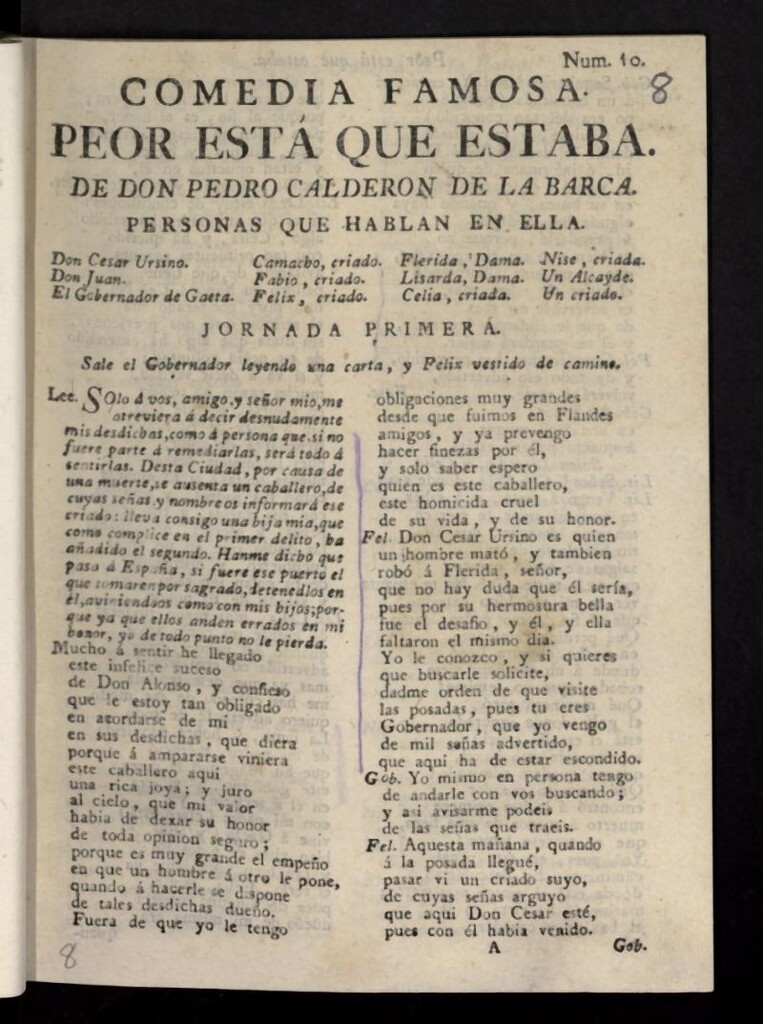 Num. 10.
8
COMEDIA FAMOSA.
PEOR ESTÁ QUE ESTABA.
DE DON PEDRO CALDERON DE LA BARCA.
PERSONAS QUE HABLAN EN ELLA.
Don Cesar Ursino. Camacho, criado. Flerida, Dama. Nise, criada.
Don Juan. Fabio, criado. Lisarda, Dama. Un Alcayde.
El Gobernador de Gaeta. Felix, criado. Celia, criada. Un criado.
JORNADA PRIMERA.
Sale el Gobernador leyendo una carta, y Felix vestido de camino.
Lee. SOlo á vos, amigo, y señor mio, me
atreviera á decir desnudamente
mis desdichas, como á persona que si no
fuere parte á remediarlas, será todo á
sentirlas. Desta Ciudad, por causa de
una muerte, se ausenta un caballero, de
cuyas señas y nombre os informará ese
criado: lleva consigo una hija mia, que
como complice en el primer delito, ha
añadido el segundo. Hanme dicho que
pasa á España, si fuere ese puerto el
que tomaren por sagrado, detenedlos en
él, aviniendoos como con mis hijos; por-
que ya que ellos anden errados en mi
honor, yo de todo punto no le pierda.
Mucho á sentir he llegado
este infelice suceso
de Don Alonso, y confieso
que le estoy tan obligado
en acordarse de mi
en sus desdichas, que diera
porque á ampararse viniera
este caballero aqui
una rica joya; y juro
al cielo, que mi valor
habia de dexar su honor
de toda opinion seguro;
porque es muy grande el empeño
en que un hombre á otro le pone,
quando á hacerle se dispone
de tales desdichas dueño.
Fuera de que yo le tengo
obligaciones muy grandes
desde que fuimos en Flandes
amigos, y ya prevengo
hacer finezas por él,
y solo saber espero
quien es este caballero,
este homicida cruel
de su vida, y de su honor.
Fel. Don Cesar Ursino es quien
un hombre mató, y tambien
robó á Flerida, señor,
que no hay duda que él sería,
pues por su hermosura bella
fue el desafio, y él, y ella
faltaron el mismo dia.
Yo le conozco, y si quieres
que buscarle solicite,
dadme orden de que visite
las posadas, pues tu eres
Gobernador, que yo vengo
de mil señas advertido,
que aqui ha de estar escondido.
Gob. Yo mismo en persona tengo
de andarle con vos buscando;
y asi avisarme podeis
de las señas que traeis.
Fel. Aquesta mañana, quando
á la posada llegué,
pasar vi un criado suyo,
de cuyas señas arguyo
que aqui Don Cesar esté,
pues con él habia venido.
A
Gob.
8